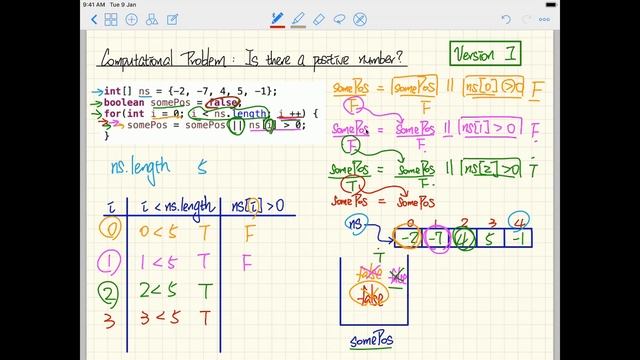 9:41 AM Tue 9 Jan
Computational Problem: Is there a positive number?
Version I
int[] ns = {-2, -7, 4, 5, -1};
boolean somePos = false;
for(int i = 0; i < ns.length; i ++) {
somePos = somePos || ns[i] > 0;
}
somePos = somePos || ns[0] > 0 F
F F
somePos = somePos || ns[1] > 0 F
F F
somePos = somePos || ns[2] > 0 T
T F
somePos = somePos
ns.length 5
i i < ns.length ns[i] > 0
0 0 < 5 T F
1 1 < 5 T F
2 2 < 5 T
3 3 < 5 T
0 1 2 3 4
ns -2 -7 4 5 -1
T
false false
false
somePos